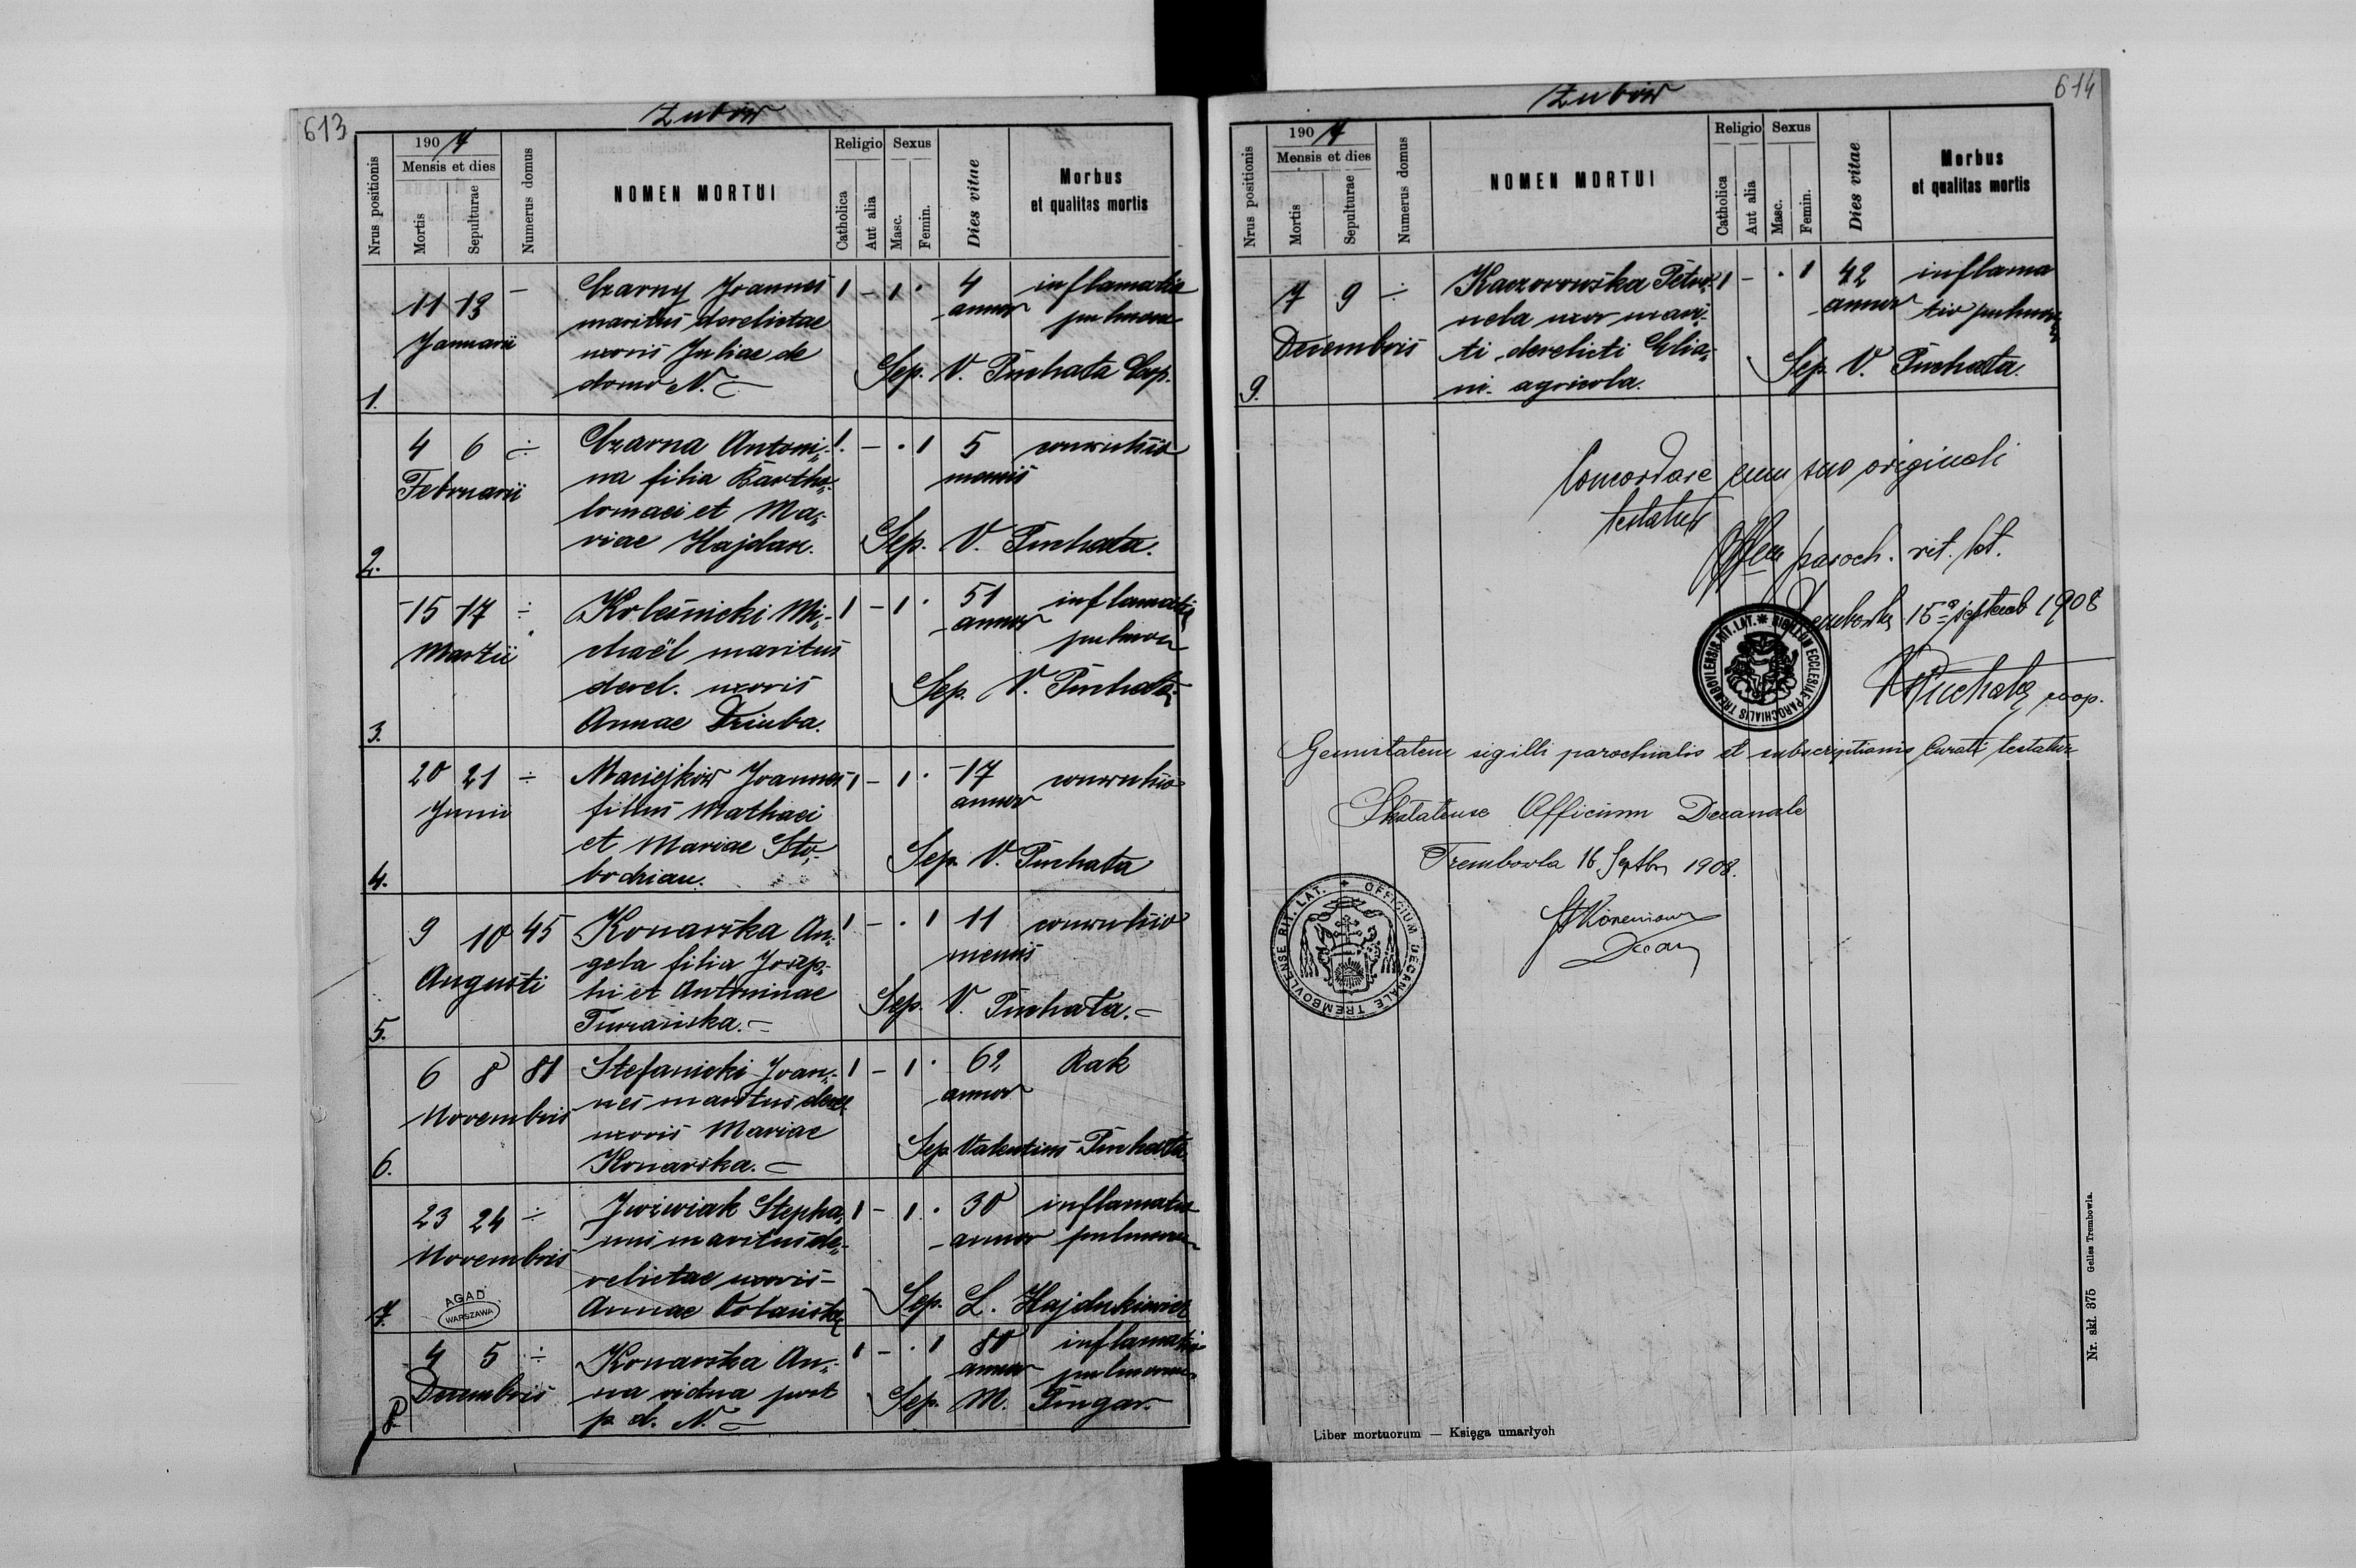 613
Zubów
Nrus positionis
1907
Mensis et dies
Mortis
Sepulturae
Numerus domus
NOMEN MORTUI
Religio
Catholica
Aut alia
Sexus
Masc.
Femin.
Dies vitae
Morbus
et qualitas mortis
1.
11 13 –
Januarii
Czarny Joannes
maritus derelictae
uxoris Juliae de
domo N.
1 – 1 ·
4
annor
inflamatio
pulmon
Sep. V. Puchała Coop.
2.
4 6 ÷
Februarii
Czarna Antoni-
na filia Bartho-
lomaei et Ma-
riae Hajdan.
1 – · 1
5
mensis
convulsio
Sep. V. Puchała.
3.
15 17 ÷
Martii
Koleśnicki Mi-
chaël maritus
derel. uxoris
Annae Dziuba.
1 – 1 ·
51
annor
inflamatio
pulmon
Sep. V. Puchała
4.
20 21 ÷
Junii
Maciejków Joannes
filius Mathaei
et Mariae Sło-
bodzian.
1 – 1 ·
17
annor
convulsio
Sep. V. Puchała
5.
9 10 45
Augusti
Konarska An-
gela filia Josep-
hi et Antoninae
Turańska.
1 – · 1
11
mensis
convulsio
Sep. V. Puchała.
6.
6 8 81
Novembris
Stefanicki Joan-
nes maritus derel.
uxoris Mariae
Konarska.
1 – 1 ·
62
annor
Rak
Sep. Valentius Puchała
7.
23 24 ÷
Novembris
Stepha-
nus maritus de-
relictae uxoris
Annae
1 – 1 ·
30
annor
inflamatio
pulmonum
Sep. L. Hajdukiewicz
8.
4 5 ÷
Decembris
Konarska An-
na vidua post
p. d. N.
1 – · 1
80
annor
inflamatio
pulmonum
Sep. M. Pungar.
AGAD
WARSZAWA
614
Zubów
Nrus positionis
1907
Mensis et dies
Mortis
Sepulturae
Numerus domus
NOMEN MORTUI
Religio
Catholica
Aut alia
Sexus
Masc.
Femin.
Dies vitae
Morbus
et qualitas mortis
9.
7 9 ÷
Decembris
Kaczorowska Petro-
nela uxor mari-
ti derelicti Elia-
ni agricola.
1 – · 1
42
annor
inflama
tio pulmon
Sep. V. Puchała.
Concordare cum suo originali
testatur
Offcm paroch. rit. lat.
Trembowla 15 septemb 1908
V Puchała coop.
SIGILLUM ECCLESIAE PAROCHIALIS TREMBOVLENSIS RIT. LAT.
Genuitatem sigilli parochialis et subscriptionis Curati testatur
Skalatense Officium Decanale
Trembowla 16 Septbr 1908.
Decan
OFFICIUM DECANALE TREMBOVLENSE RIT. LAT.
Liber mortuorum — Księga umarłych
Nr. skł. 375 Gelles Trembowla.